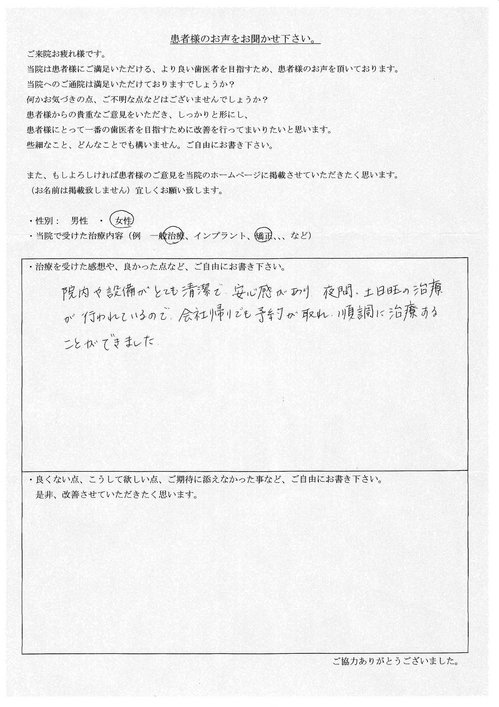 患者様のお声をお聞かせ下さい。
ご来院お疲れ様です。
当院は患者様にご満足いただける、より良い歯医者を目指すため、患者様のお声を頂いております。
当院へのご通院は満足いただけておりますでしょうか？
何かお気づきの点、ご不明な点などはございませんでしょうか？
患者様からの貴重なご意見をいただき、しっかりと形にし、
患者様にとって一番の歯医者を目指すために改善を行ってまいりたいと思います。
些細なこと、どんなことでも構いません。ご自由にお書き下さい。
また、もしよろしければ患者様のご意見を当院のホームページに掲載させていただきたく思います。
（お名前は掲載致しません）宜しくお願い致します。
・性別： 男性 ・ 女性
・当院で受けた治療内容（例 一般治療、インプラント、矯正、、、など）
・治療を受けた感想や、良かった点など、ご自由にお書き下さい。
院内や設備がとても清潔で、安心感があり 夜間、土日旺の治療
が行われているので、会社帰りでも予約が取れ、順調に治療する
ことができました
・良くない点、こうして欲しい点、ご期待に添えなかった事など、ご自由にお書き下さい。
是非、改善させていただきたく思います。
ご協力ありがとうございました。